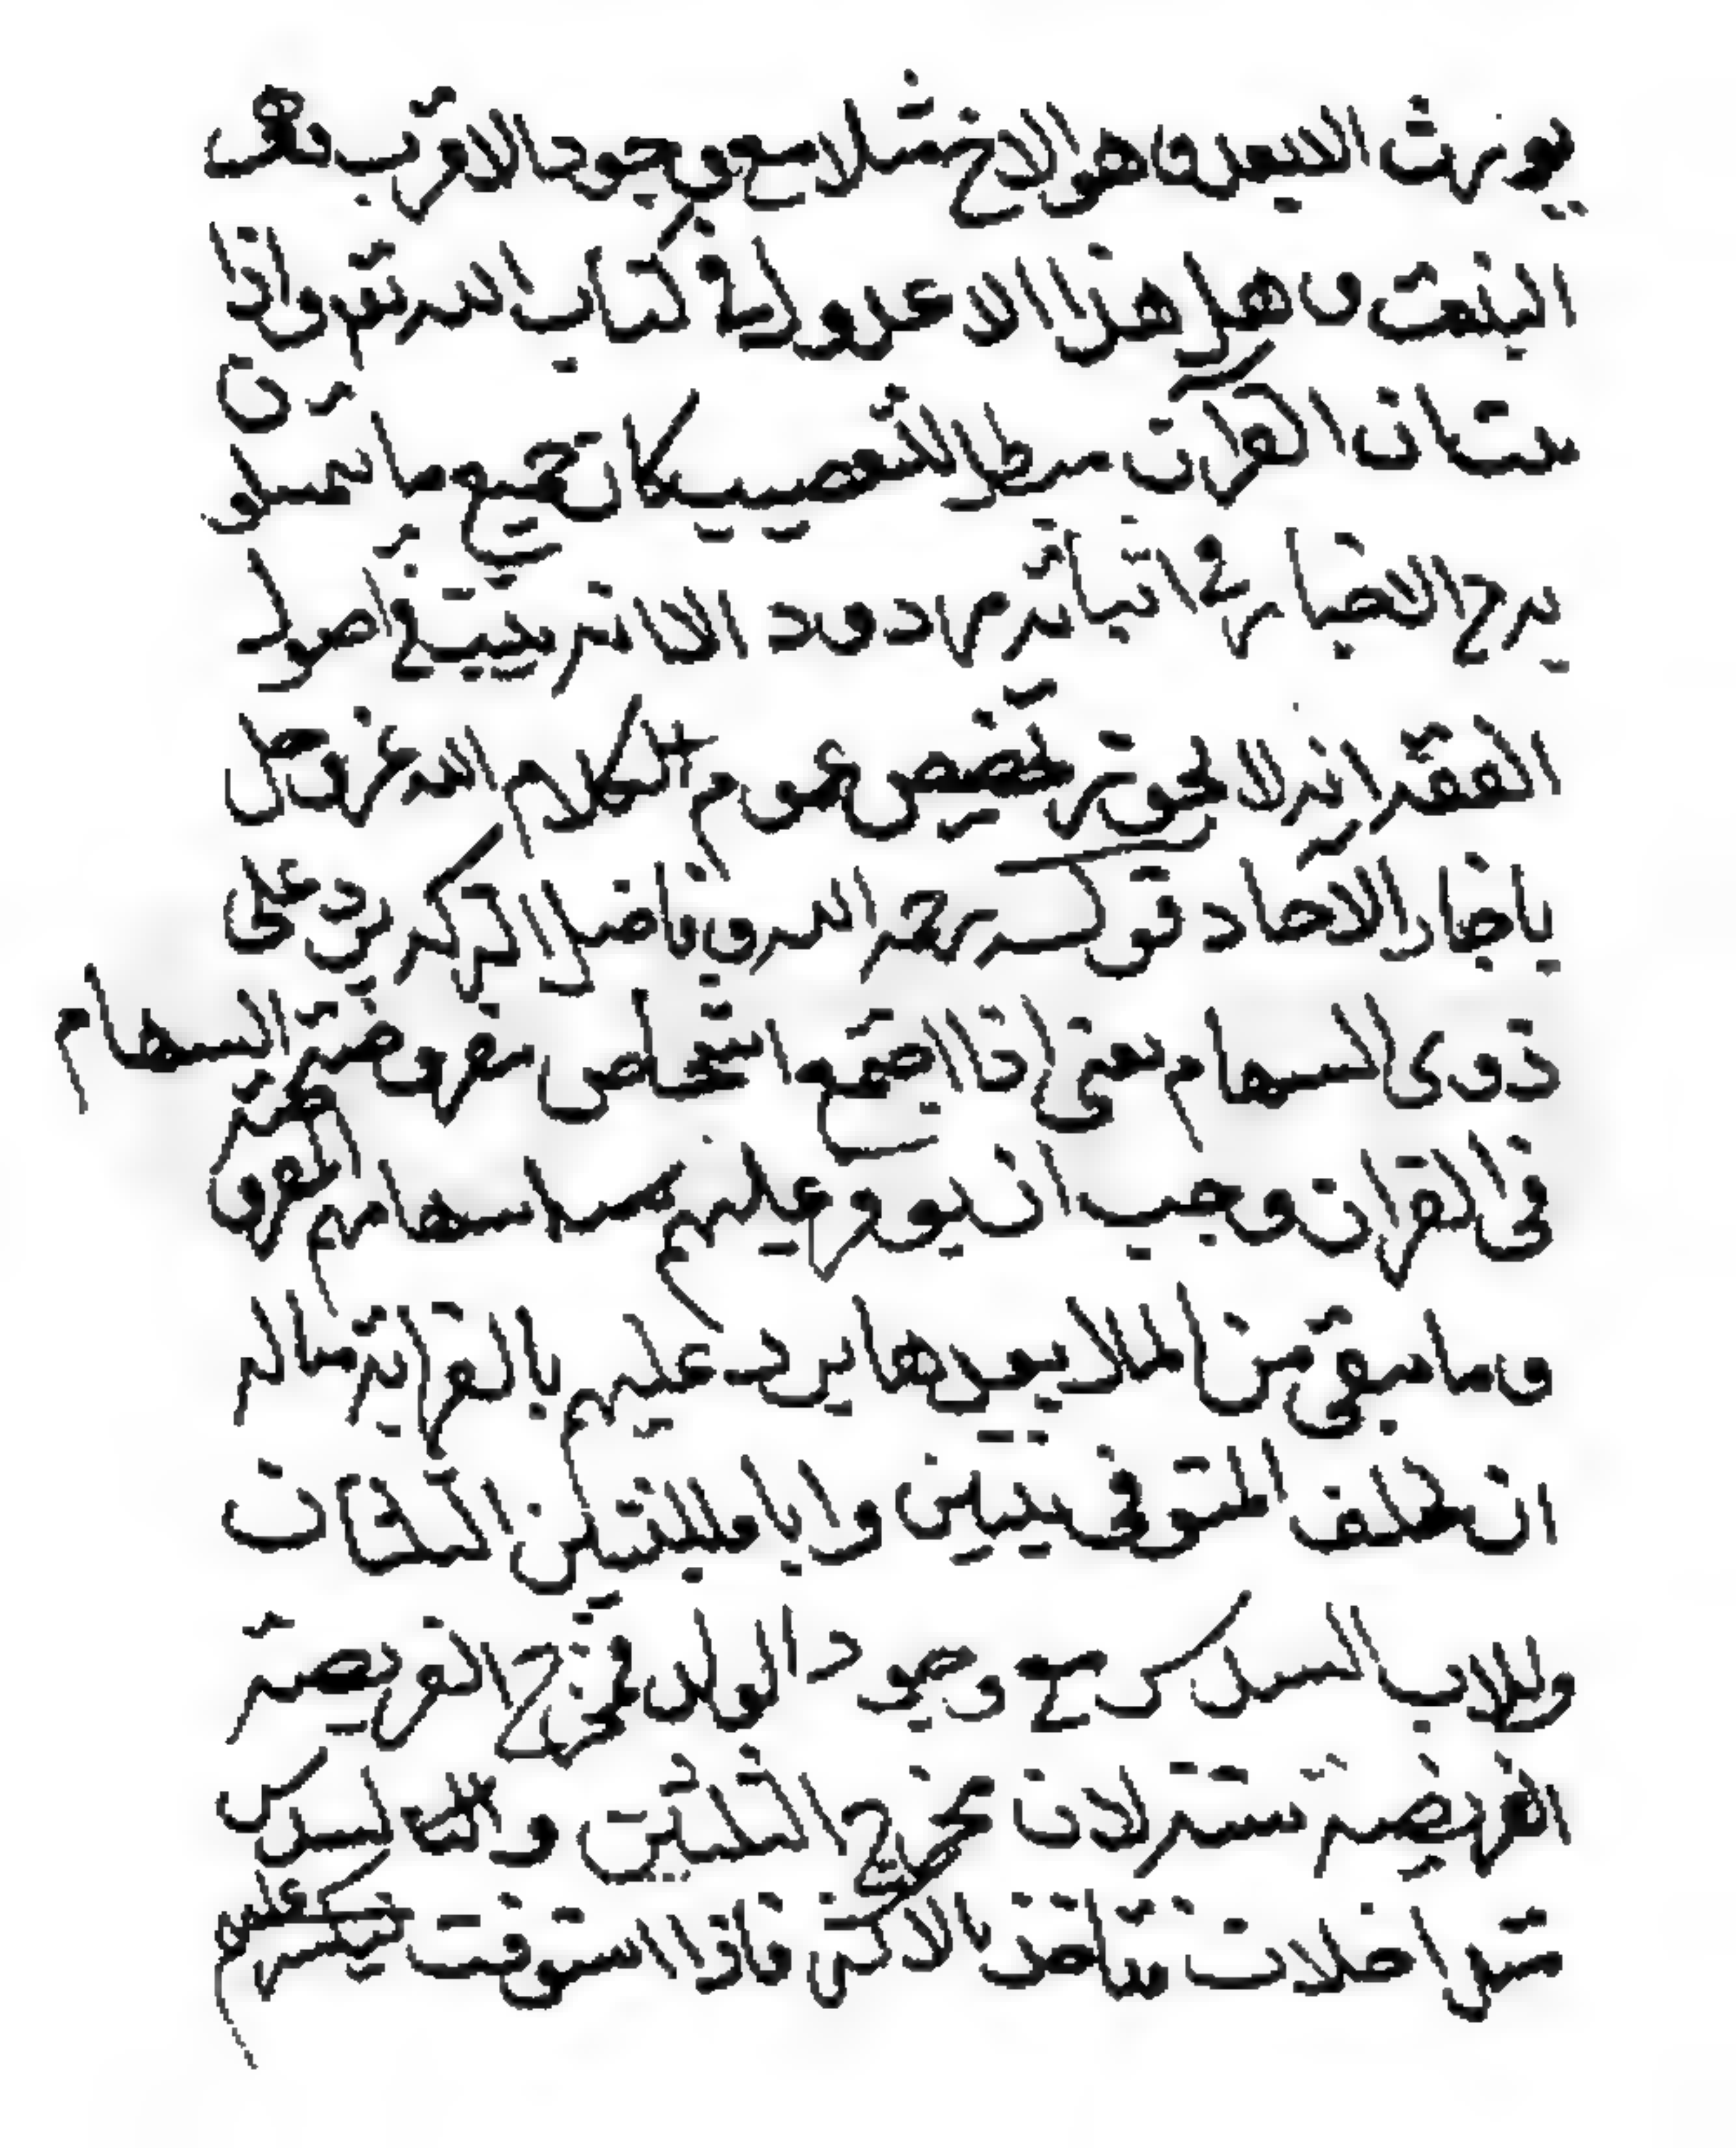 يورث البعيد وهو الاخ مثلا مع وجود الاقرب وهي
البنت وهل هذا الا عدول في كتاب الله تعم واذا
شان القران من طرالتعصيب كان جميع ما تمسلون
يرح الضبا في اثباته مردود الا انه يثبت في اصول
الفقه انه لا يجوز تخصيص عموم الكلام الله عز وجل
باخبار الاحاد قوله رحمه الله فاضل التركه يرد على
ذوي السهام يعني اذا اجتمع اشخاص مفروضة السهام
في القران وجب ان يوفر عليهم سهامهم المفروضة
وما بقى من المال بعدها يرد عليهم بالقرابة مالم
ان تخلف المتوفى بنتين وابا فللبنتين الثلثان
وللاب السدس مع وجود الولد فمخرج الفريضة
الفريضة ستة لان مخرج الثلثين والسدس
متداخلان تتاخذ بالاكثر فاذا استوفت